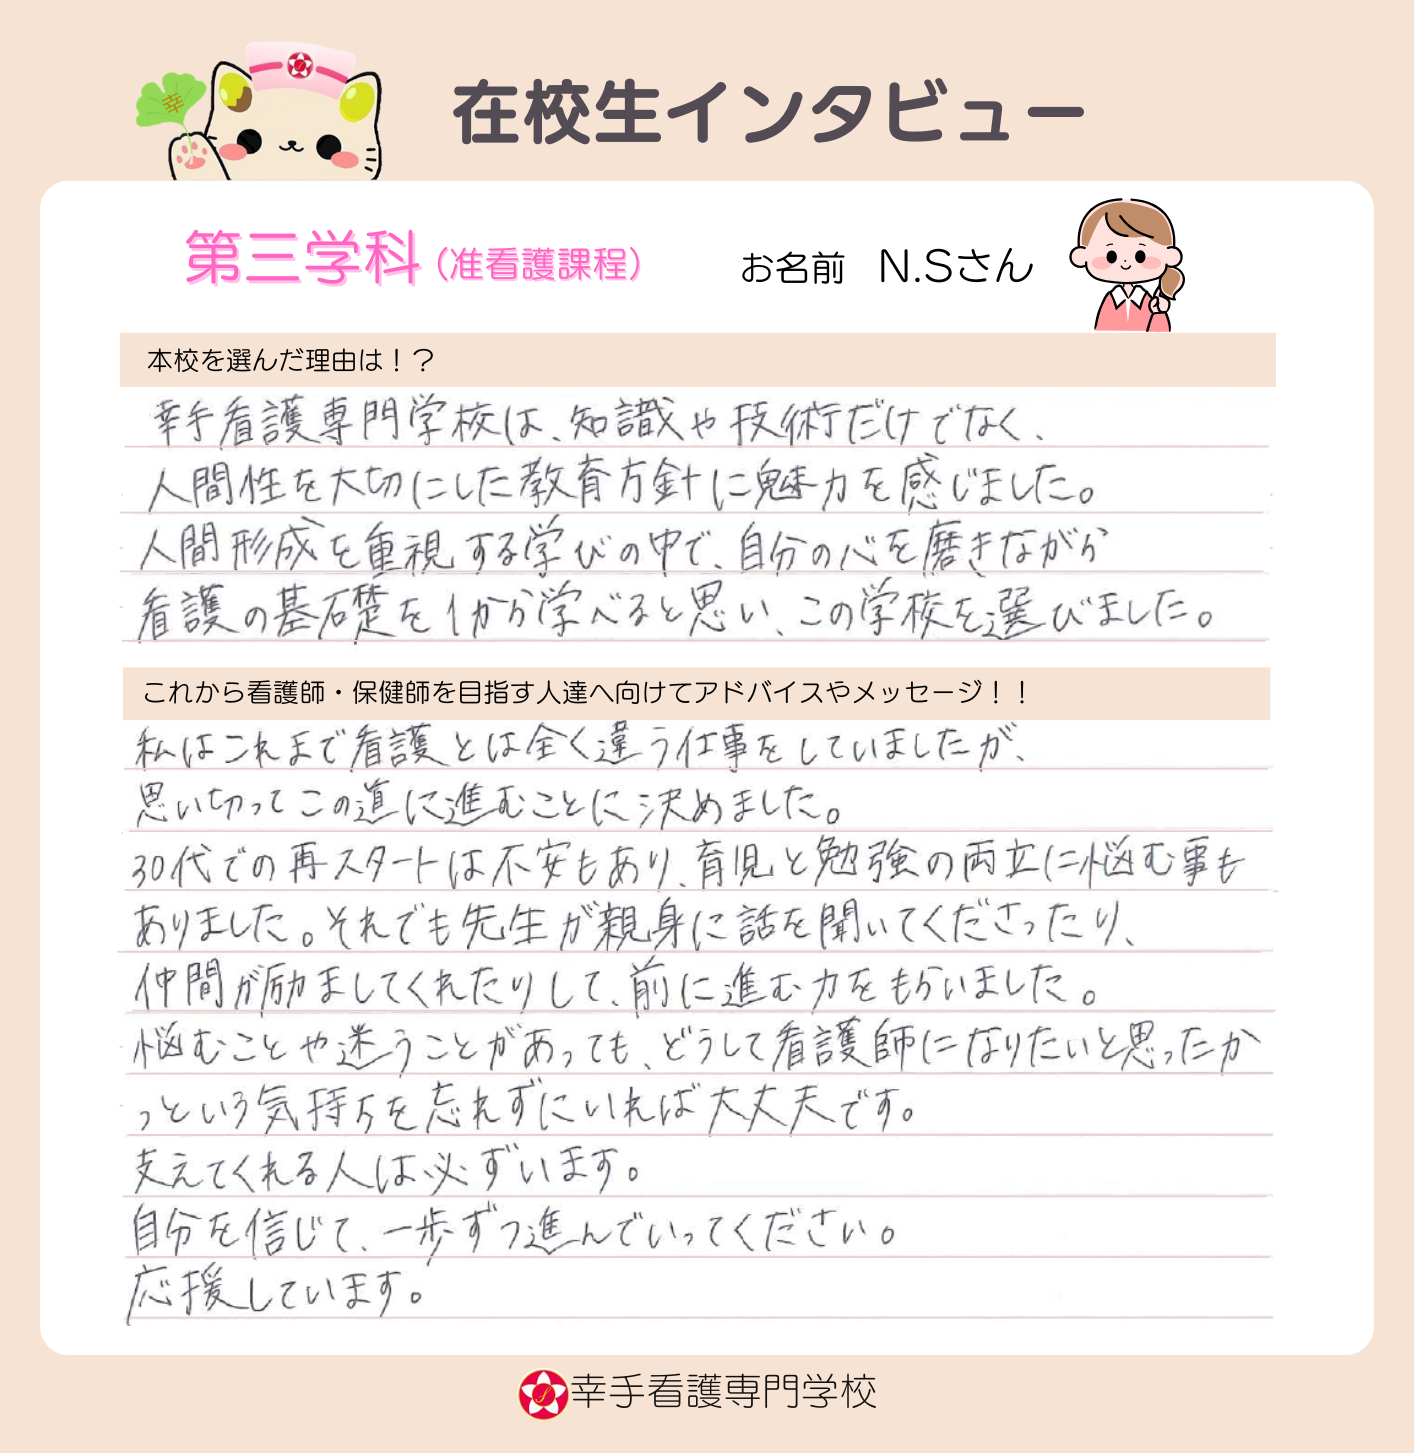 幸
在校生インタビュー
第三学科（准看護課程）
お名前 N.Sさん
本校を選んだ理由は！？
幸手看護専門学校は、知識や技術だけでなく、
人間性を大切にした教育方針に魅力を感じました。
人間形成を重視する学びの中で、自分の心を磨きながら
看護の基礎を1から学べると思い、この学校を選びました。
これから看護師・保健師を目指す人達へ向けてアドバイスやメッセージ！！
私はこれまで看護とは全く違う仕事をしていましたが、
思い切ってこの道に進むことに決めました。
30代での再スタートは不安もあり、育児と勉強の両立に悩む事も
ありました。それでも先生が親身に話を聞いてくださったり、
仲間が励ましてくれたりして、前に進む力をもらいました。
悩むことや迷うことがあっても、どうして看護師になりたいと思ったか
っという気持ちを忘れずにいれば大丈夫です。
支えてくれる人は必ずいます。
自分を信じて、一歩ずつ進んでいってください。
応援しています。
幸手看護専門学校